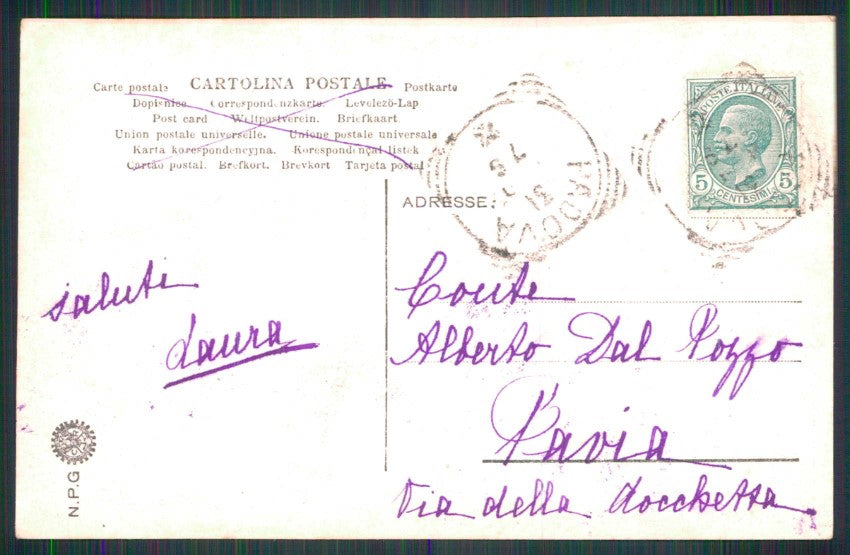 Carte postale CARTOLINA POSTALE Postkarte
Dopisnice. Correspondenzkarte. Levelező-Lap
Post card Weltpostverein. Briefkaart
Union postale universelle. Unione postale universale
Karta korespondencyjna. Korespondenčal listek
Cartão postal. Brefkort. Brevkort Tarjeta postal
PADOVA
31
POSTE ITALIANE
5 CENTESIMI 5
ADRESSE:
saluti
Laura
Conte
Alberto Dal Pozzo
Pavia
Via della Rocchetta.
N.P.G